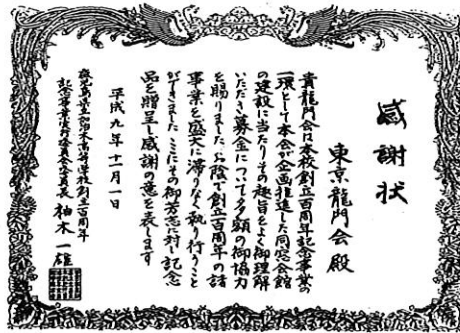 感謝状
東京龍門会殿
貴龍門会は本校創立百周年記念事業の
一環として本会が企画推進した同窓会館
の建設に当たりその趣旨をよく御理解
いただき募金について多額の御協力
を賜りました お陰で創立百周年の諸
事業を盛大に滞りなく執り行うこと
ができました ここにその御芳志に対し記念
品を贈呈し感謝の意を表します
平成九年十一月一日
鹿児島県立加治木高等学校創立百周年
記念事業実行委員会委員長 柚木一雄